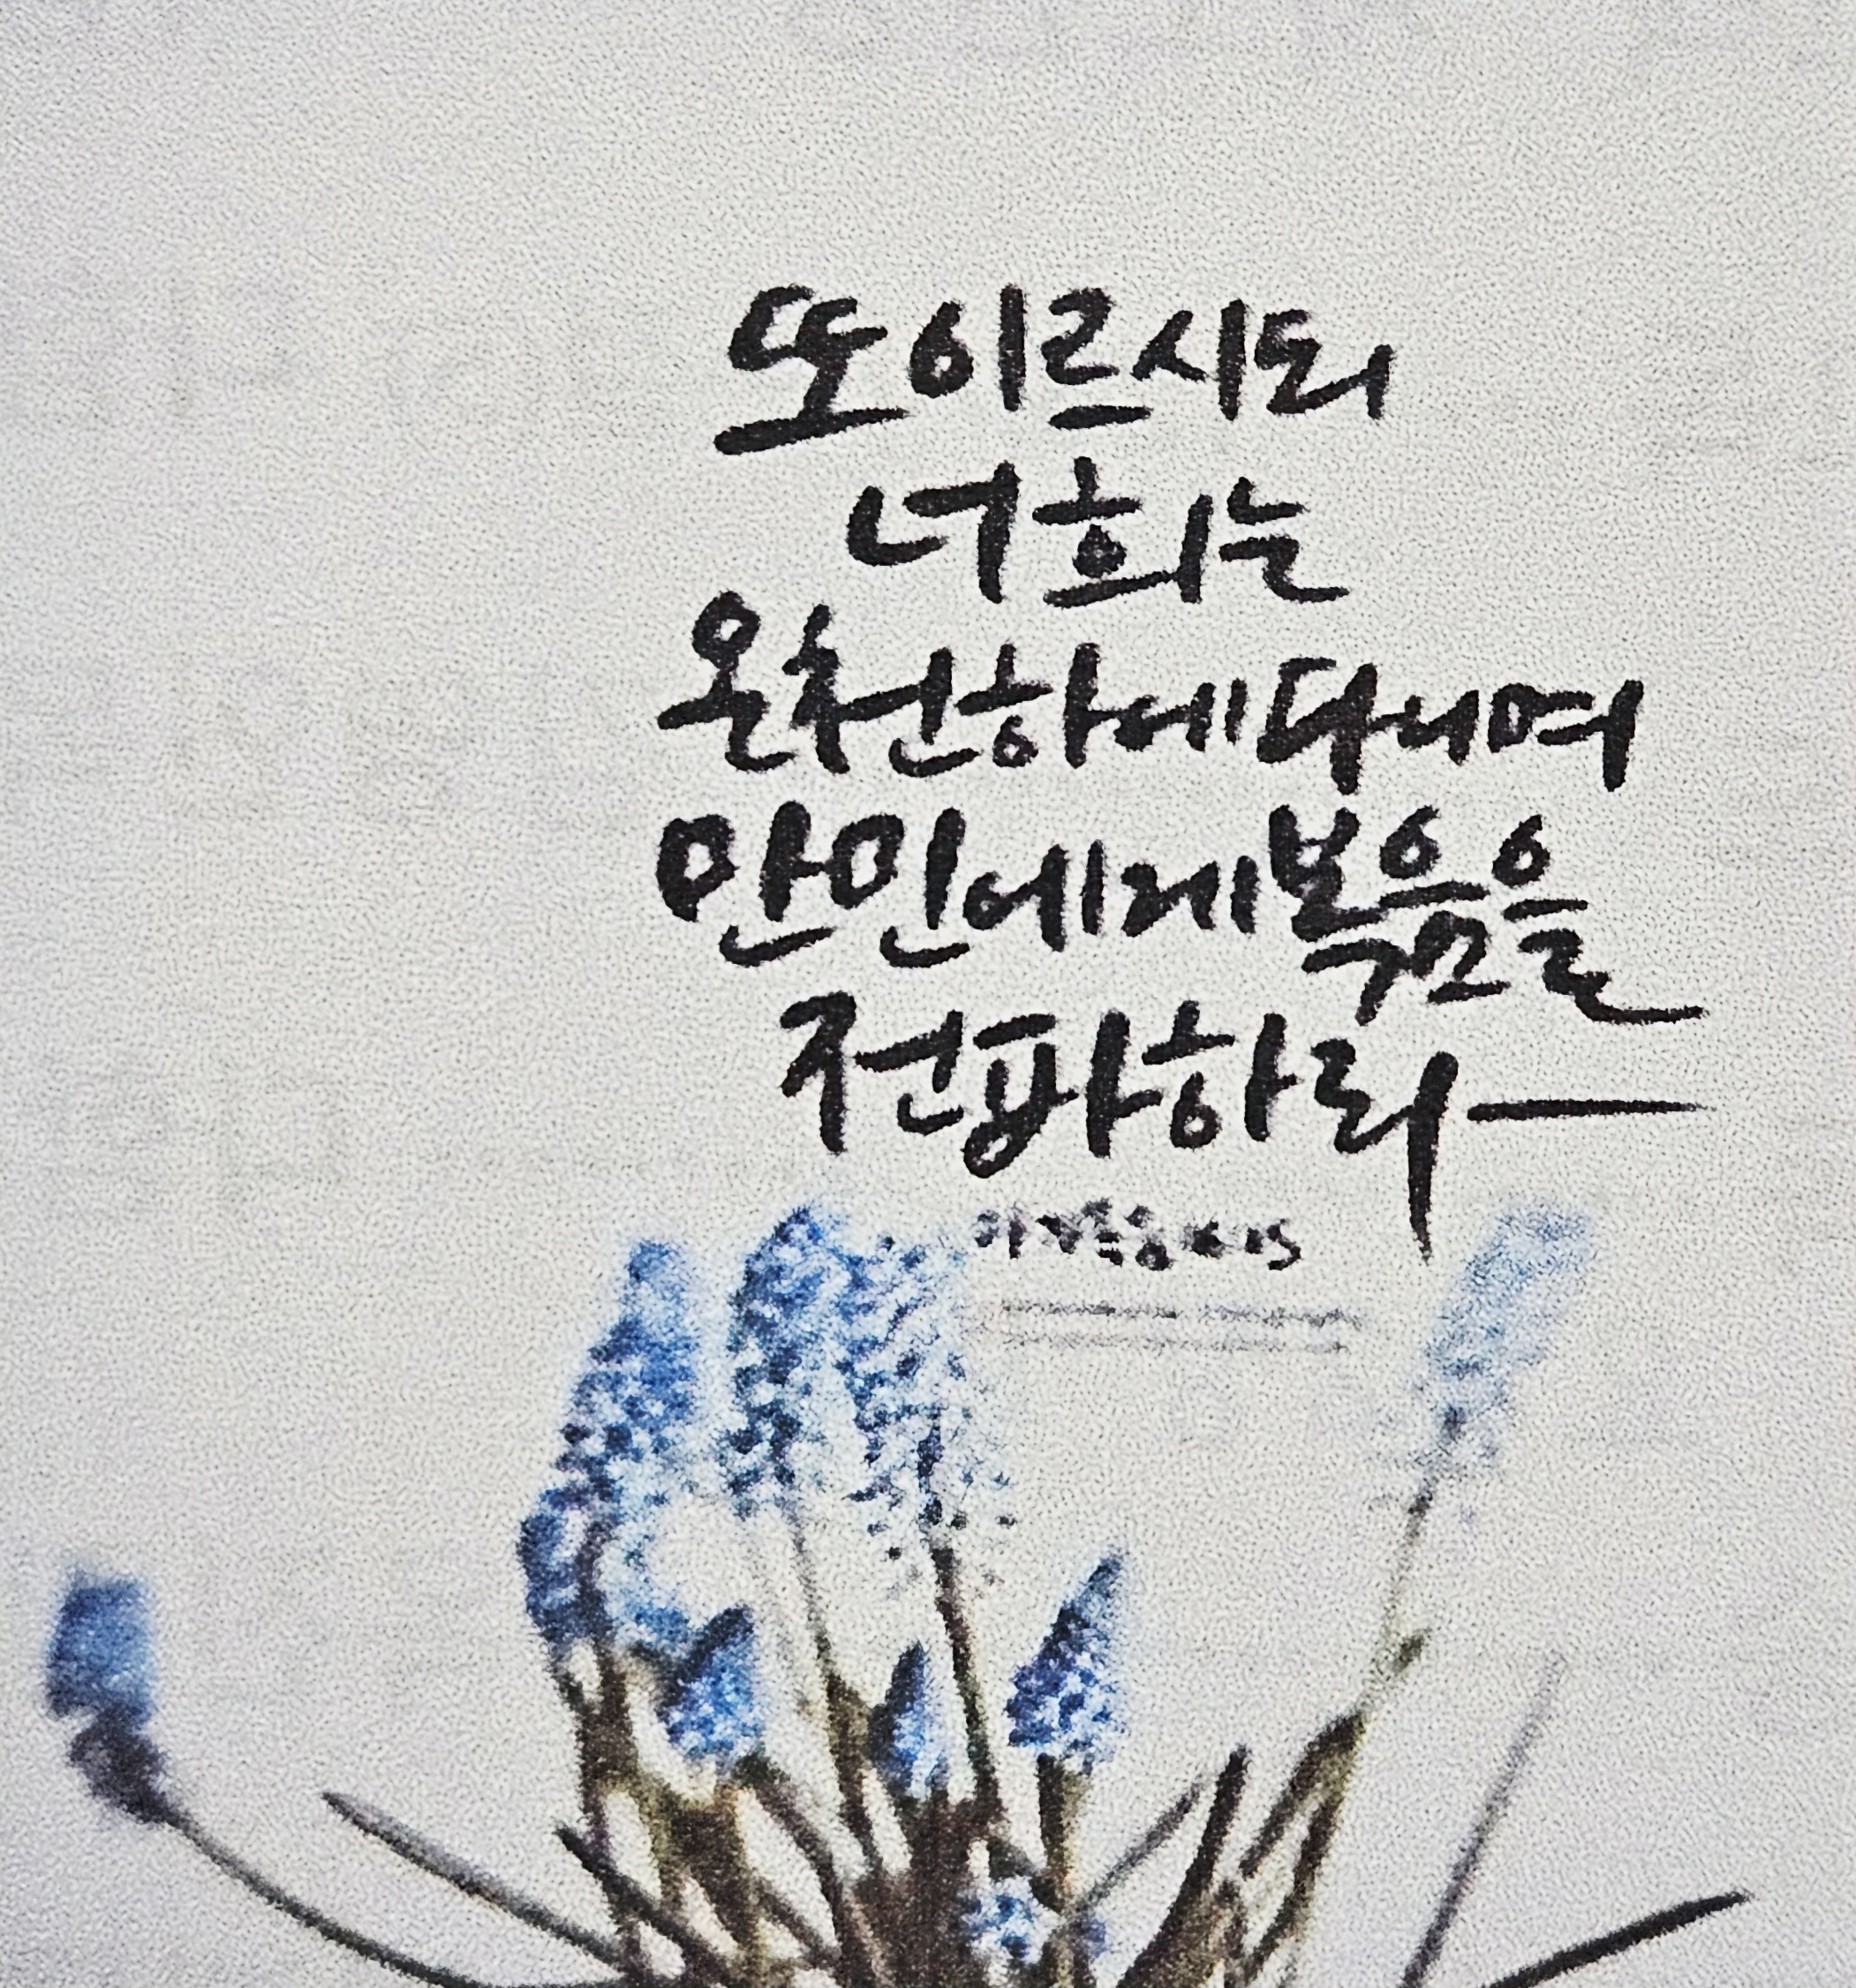 또 이르시되
너희는
온 천하에 다니며
만민에게 복음을
전파하라
마가복음 16:15